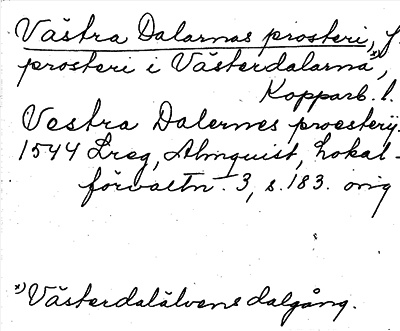 Västra Dalarnas prosteri, f.
prosteri i Västerdalarna*),
Kopparb. l.
Vestra Dalernes proestery.
1544 Lreg, Almquist, Lokal-
förvaltn. 3, s. 183. orig
*) Västerdalälvens dalgång.